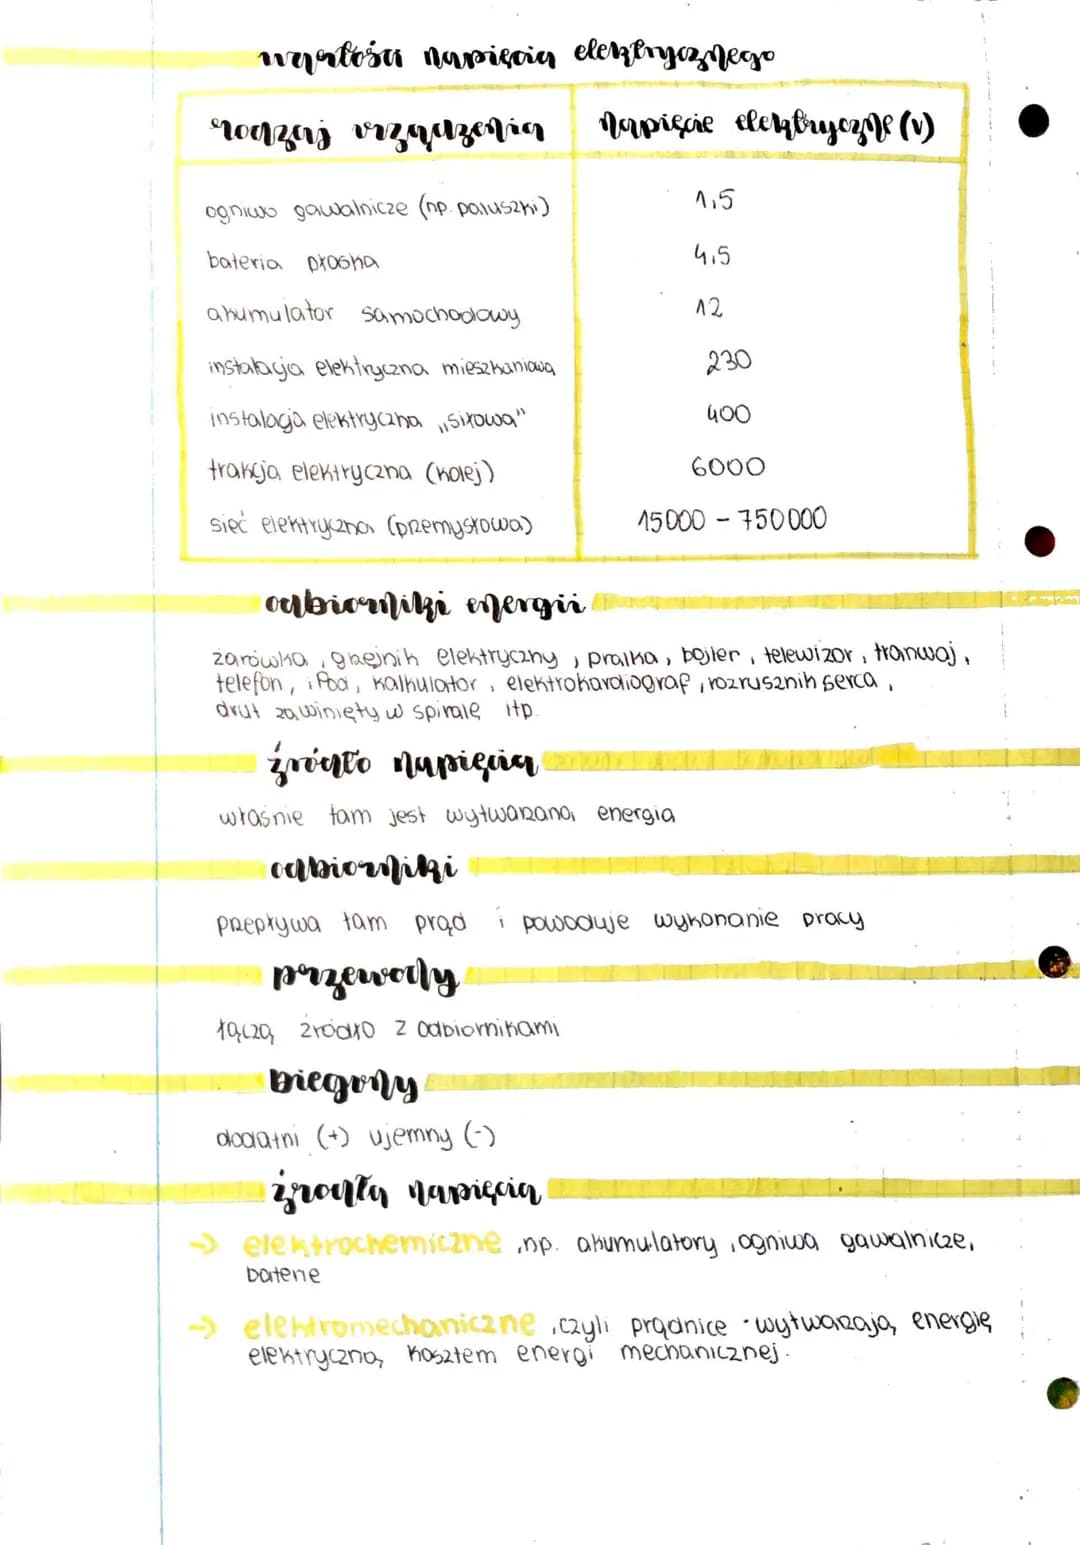 wartości napięcia elektrycznego
rodzaj urządzenia napięcie elektryczne (v)
ogniwo gawalnicze (np. paluszki) 1,5
bateria płaska 4,5
akumulator samochodowy 12
instalacja elektryczna mieszkaniowa 230
instalacja elektryczna „siłowa" 400
trakcja elektryczna (kolej) 6000
sieć elektryczna (przemysłowa) 15000 - 750000
odbiorniki energii
żarówka, grzejnik elektryczny, pralka, bojler, telewizor, tramwaj,
telefon, iPod, kalkulator, elektrokardiograf, rozrusznik serca,
drut zawinięty w spiralę itp.
źródło napięcia
właśnie tam jest wytwarzana energia
odbiorniki
przepływa tam prąd i powoduje wykonanie pracy
przewody
łączą źródło z odbiornikami
Bieguny
dodatni (+) ujemny (-)
źródła napięcia
→ elektrochemiczne, np. akumulatory, ogniwa gawalnicze,
baterie
→ elektromechaniczne, czyli prądnice - wytwarzają energię
elektryczną kosztem energi mechanicznej.